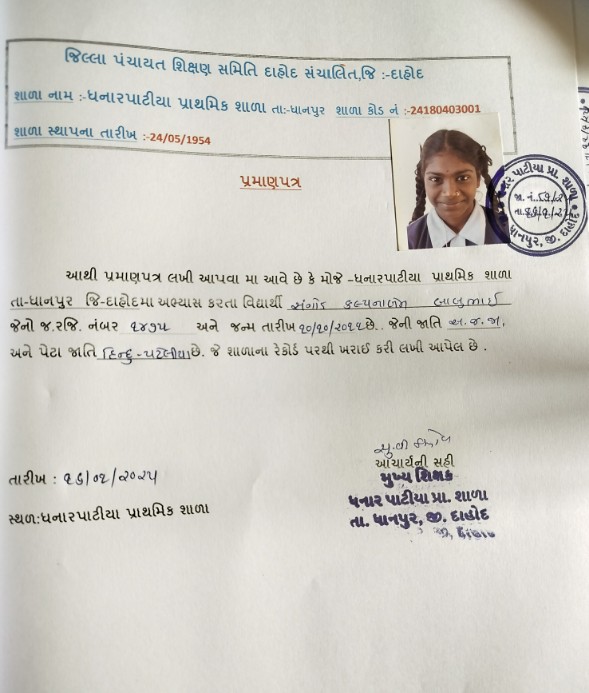 જિલ્લા પંચાયત શિક્ષણ સમિતિ દાહોદ સંચાલિત,જિ :-દાહોદ
શાળા નામ :-ધનારપાટીયા પ્રાથમિક શાળા તા:-ધાનપુર શાળા કોડ નં :-24180403001
શાળા સ્થાપના તારીખ :-24/05/1954
પ્રમાણપત્ર
નાર પાટીયા પ્રા. શાળા
જા. નં.
તા.
ધાનપુર, જી. દાહોદ
આથી પ્રમાણપત્ર લખી આપવા મા આવે છે કે મોજે -ધનારપાટીયા પ્રાથમિક શાળા
તા-ધાનપુર જિ-દાહોદમા અભ્યાસ કરતા વિદ્યાર્થી સંગોડ કલ્પનાબેન બાબુભાઈ
જેનો જ.રજિ. નંબર ૧૪૭૫ અને જન્મ તારીખ છે.. જેની જાતિ અ.જ.જા.
અને પેટા જાતિ હિન્દુ-પટેલીયા છે. જે શાળાના રેકોર્ડ પરથી ખરાઈ કરી લખી આપેલ છે .
તારીખ : ૧૬/૦૧/૨૦૨૫
સ્થળ:ધનારપાટીયા પ્રાથમિક શાળા
આચાર્યની સહી
મુખ્ય શિક્ષક
ધનાર પાટીયા પ્રા. શાળા
તા. ધાનપુર, જી. દાહોદ